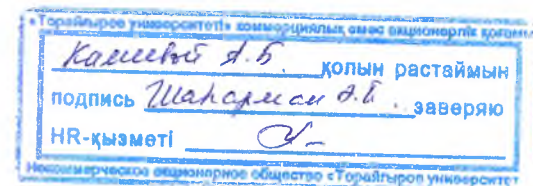 «Торайғыров университеті» коммерциялық емес акционерлік қоғамы
А.Б. қолын растаймын
подпись заверяю
HR-қызметі
Некоммерческое акционерное общество «Торайғыров университет